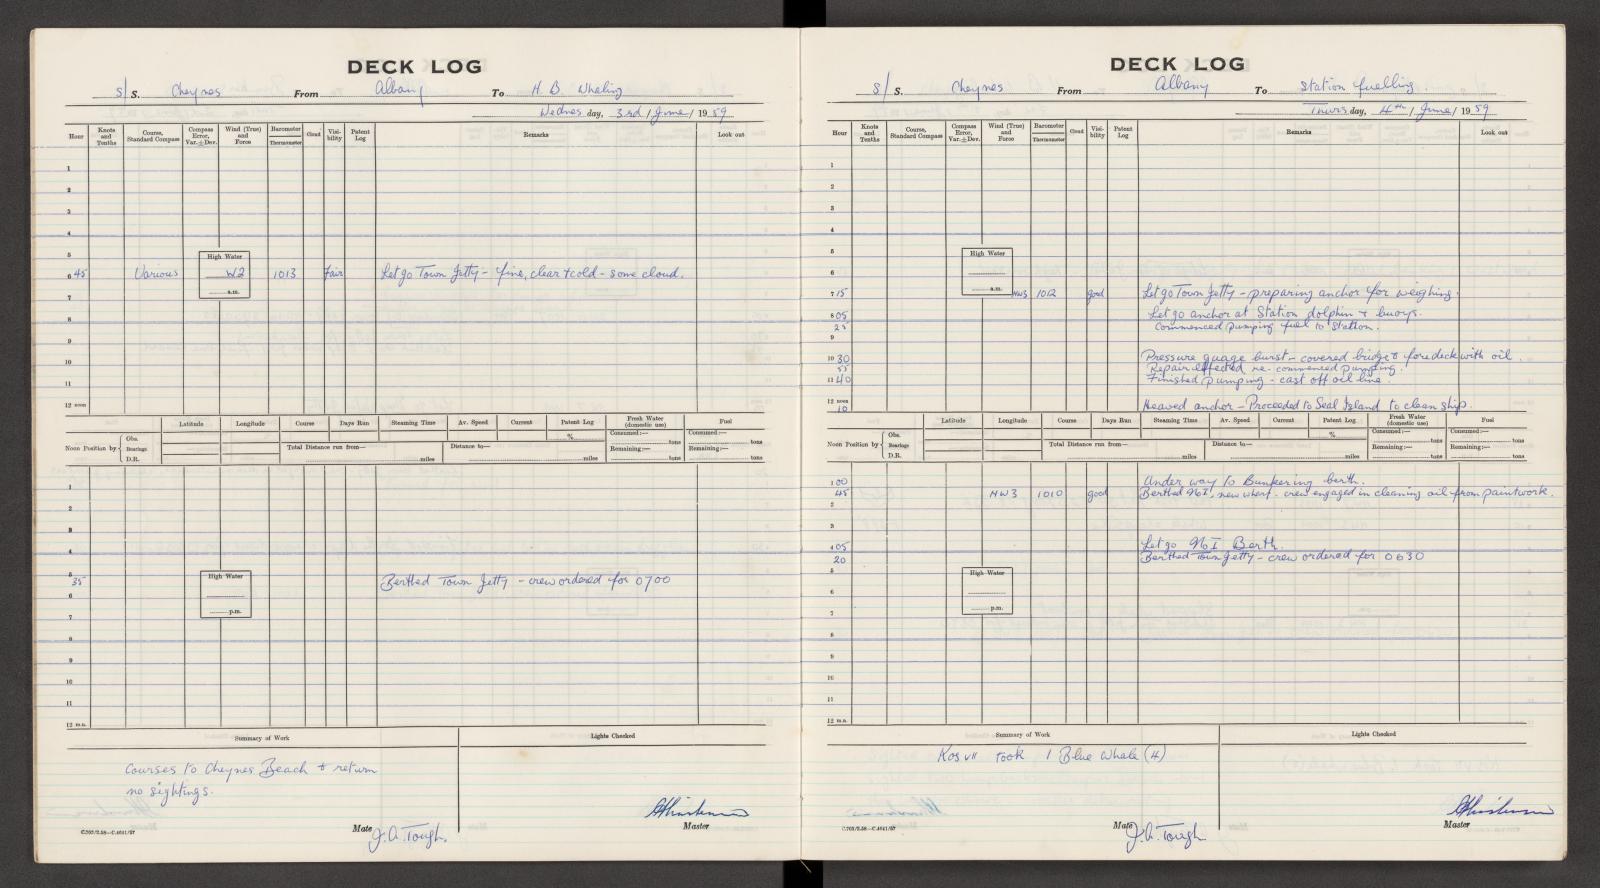 DECK LOG
S/ S. Cheynes From Albany To H. B. Whaling
Wednes day, 3rd / June / 1959
Hour Knots and Tenths Course, Standard Compass Compass Error, Var.±Dev. Wind (True) and Force Barometer Thermometer Cloud Visibility Patent Log Remarks Look out
1
2
3
4
5 High Water
6 45 Various W2 1013 Fair Let go Town Jetty - fine, clear + cold - some cloud.
7 a.m.
8
9
10
11
12 noon
Noon Position by Obs. Bearings D.R. Latitude Longitude Course Days Run Steaming Time Av. Speed Current Patent Log Fresh Water (domestic use) Fuel
% Consumed:— tons Consumed:— tons
Total Distance run from— miles Distance to— miles Remaining:— tons Remaining:— tons
1
2
3
4
5 High Water
35 Berthed Town Jetty - crew ordered for 0700
6
7 p.m.
8
9
10
11
12 m.n.
Summary of Work Lights Checked
Courses to Cheynes Beach + return
no sightings.
C.702/2.58—C.4641/57 Mate J. A. Tough. Master
DECK LOG
S/ S. Cheynes From Albany To Station fuelling.
Thurs day, 4th / June / 1959
Hour Knots and Tenths Course, Standard Compass Compass Error, Var.±Dev. Wind (True) and Force Barometer Thermometer Cloud Visibility Patent Log Remarks Look out
1
2
3
4
5 High Water
6
7 15 a.m. NW3 1012 good Let go Town Jetty - preparing anchor for weighing.
8 05 Let go anchor at Station dolphin + buoys.
25 Commenced pumping fuel to Station.
9
10 30 Pressure guage burst - covered bridge + foredeck with oil.
55 Repair effected re-commenced pumping.
11 40 Finished pumping - cast off oil line.
12 noon
10 Heaved anchor - Proceeded to Seal Island to clean ship.
Noon Position by Obs. Bearings D.R. Latitude Longitude Course Days Run Steaming Time Av. Speed Current Patent Log Fresh Water (domestic use) Fuel
% Consumed:— tons Consumed:— tons
Total Distance run from— miles Distance to— miles Remaining:— tons Remaining:— tons
1 00 Under way to Bunkering berth.
45 NW3 1010 good Berthed No I, new wharf. crew engaged in cleaning oil from paintwork.
2
3
4 05 Let go No I Berth.
20 Berthed Town Jetty - crew ordered for 0630
5 High Water
6
7 p.m.
8
9
10
11
12 m.n.
Summary of Work Lights Checked
Kos VII took 1 Blue Whale (4)
C.702/2.58—C.4641/57 Mate J. A. Tough Master